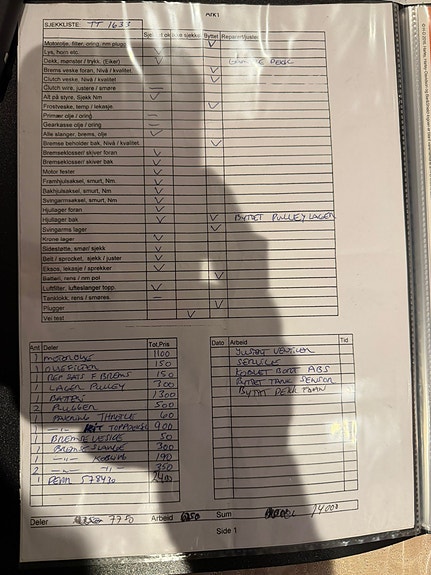 Ark1
SJEKKLISTE: TT 1633
Sjekket ok Ikke sjekket Byttet Reparert/juster
Motorolje, filter, oring, nm plugg
Lys, horn etc.
Dekk, mønster / trykk. (Eiker) DEKK
Brems veske foran, Nivå / kvalitet
Clutch veske, Nivå / kvalitet
Clutch wire, justere / smøre
Alt på styre, Sjekk Nm
Frostveske, temp / lekasje.
Primær olje / oring
Gearkasse olje / oring
Alle slanger, brems, olje
Bremse beholder bak, Nivå / kvalitet.
Bremseklosser/ skiver foran
Bremseklosser/ skiver bak
Motor fester
Framhjulsaksel, smurt, Nm.
Bakhjulsaksel, smurt, Nm
Svingarmsaksel, smurt, Nm.
Hjullager foran
Hjullager bak BYTTET PULLEY LAGER
Svingarms lager
Krone lager
Sidestøtte, smør/ sjekk
Belt / sprocket, sjekk / juster
Eksos, lekasje / sprekker
Batteri, rens / nm pol
Luftfilter, lufteslanger topp.
Tanklokk, rens / smøres.
Plugger
Vei test
Ant Deler Tot.Pris
1 MOTOROLJE 1100
1 OLJEFILTER 150
1 REP SATS F BREMS 150
1 LAGER PULLEY 300
1 BATTERI 1300
2 PLUGGER 500
1 PAKNING THROTTLE 60
1 —"— KIT TOPPDEKSEL 900
1 BREMSE VESKE 50
1 BREMSE SLANGE 300
1 —"— KOBLING 190
2 —"— —"— 350
1 DEKK 578430 2400
Dato Arbeid Tid
JUSTERT VENTILER
SERVICE
KOBLET BORT ABS
BYTTET TANK SENSOR
BYTTET DEKK FORAN
Deler 7750 Arbeid 6250 Sum 14000
Side 1